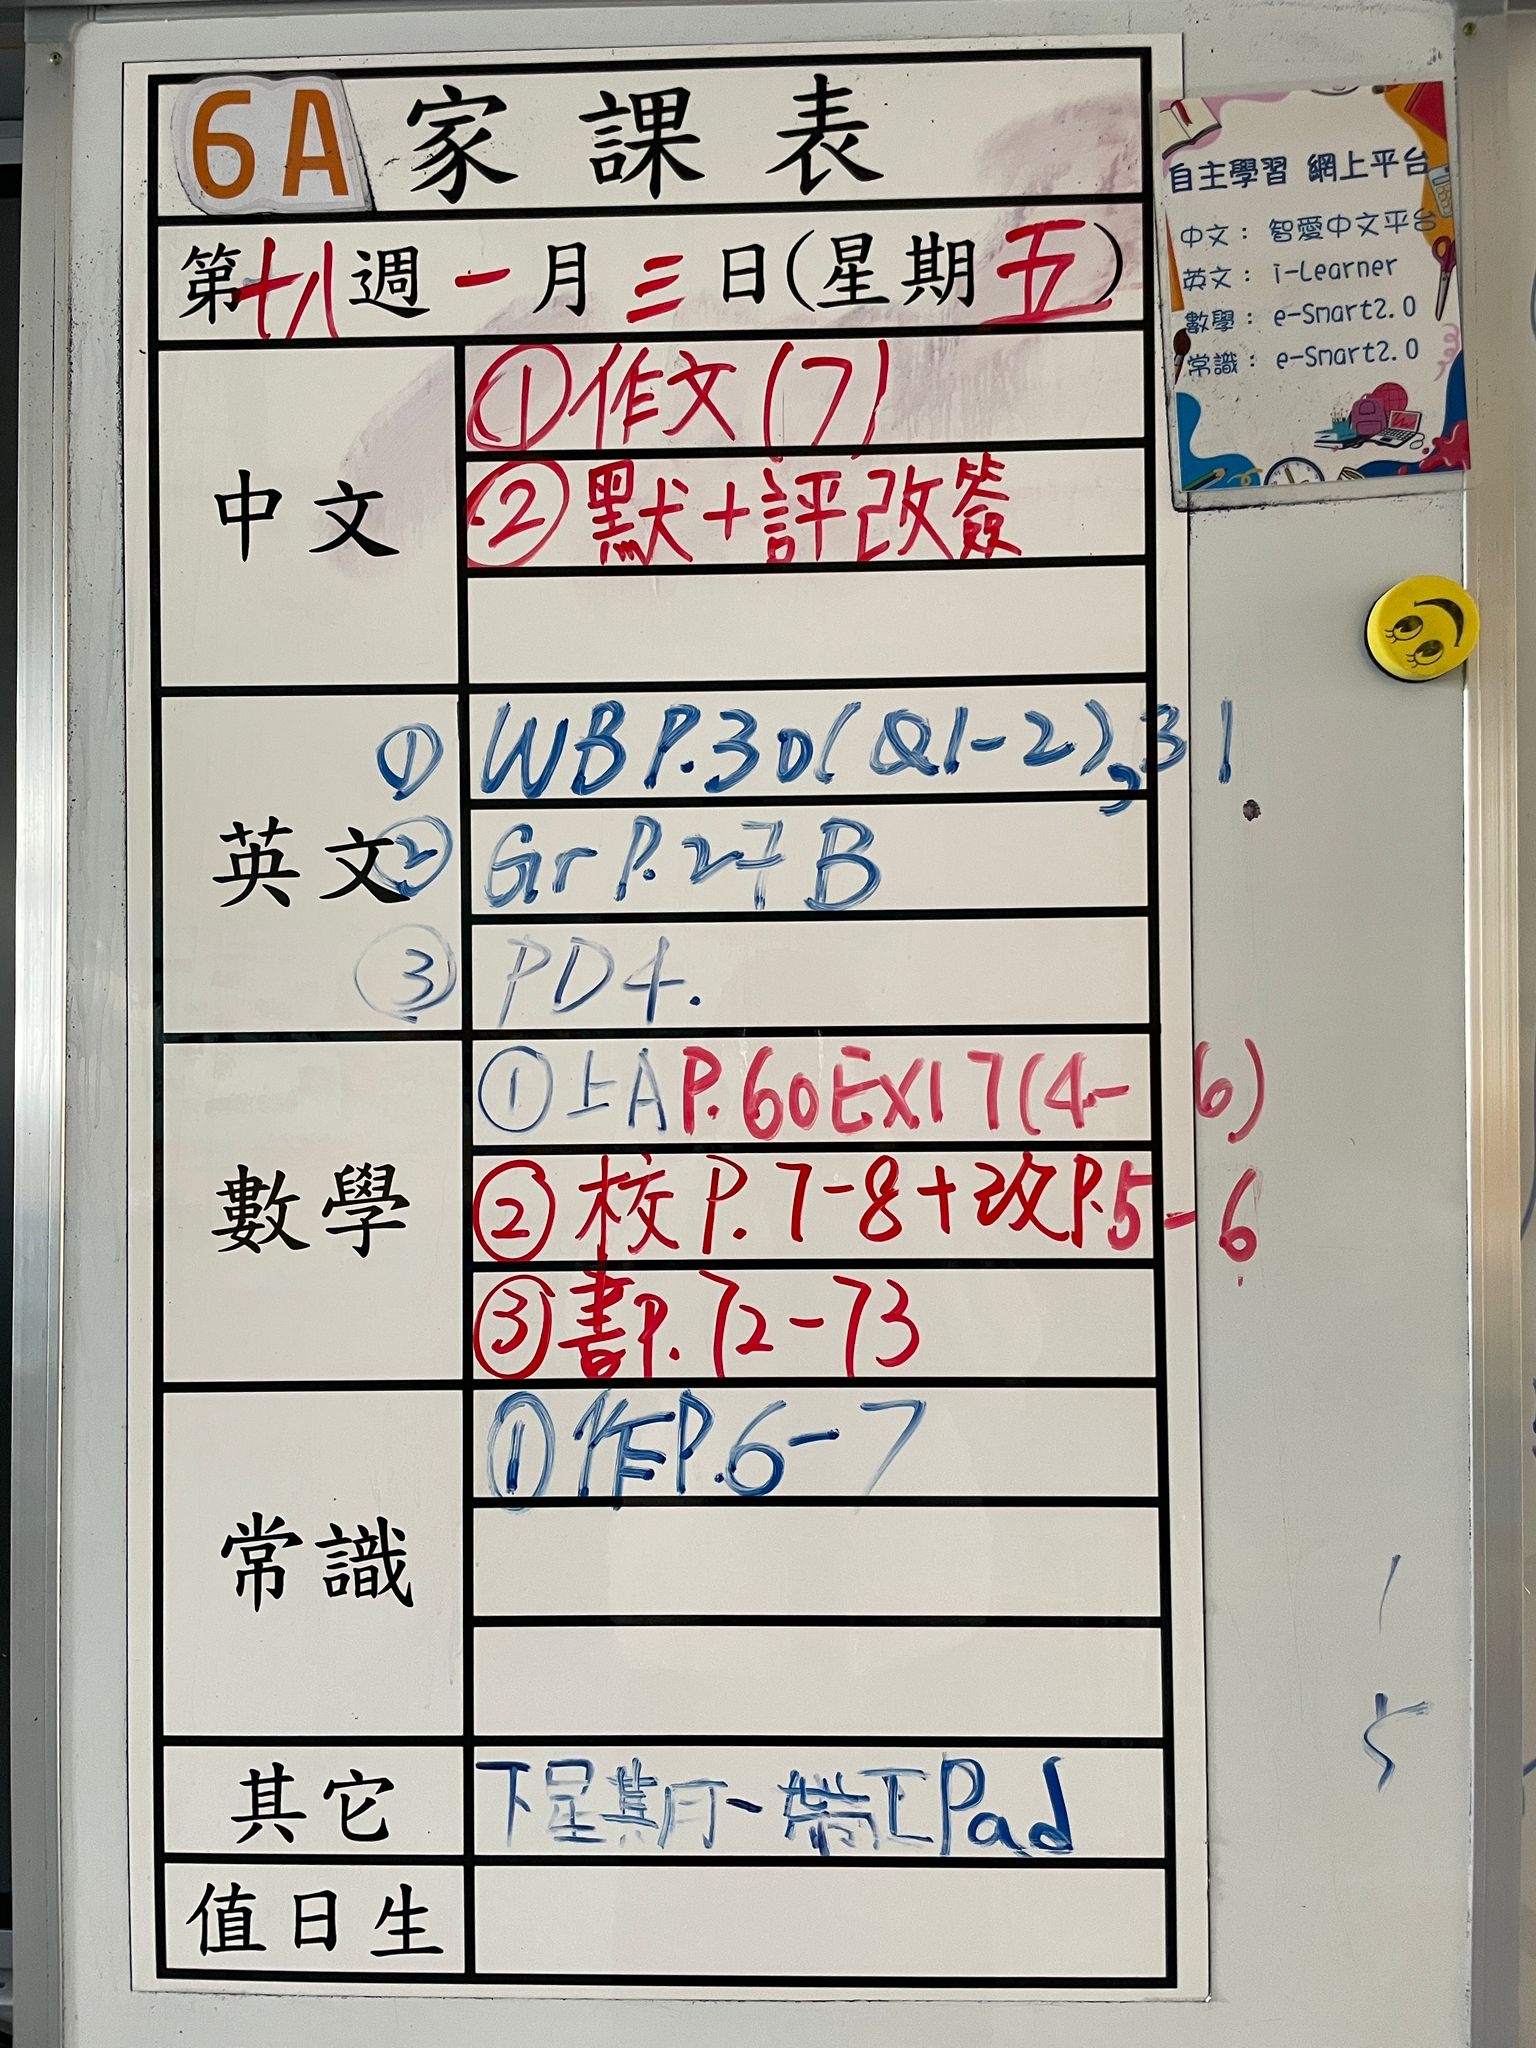 6A 家課表
第十八週 一月三日(星期五)
中文
①作文(7)
②默+評改簽
英文
① WB P.30(Q1-2),31
② Gr P.27B
③ PD4.
數學
①上A P.60 EX17(4-6)
②校P.7-8+改P.5-6
③書P.72-73
常識
①作P.6-7
其它
下星期一帶IPad
值日生
自主學習 網上平台
中文： 智愛中文平台
英文： i-Learner
數學： e-Smart2.0
常識： e-Smart2.0
1
5